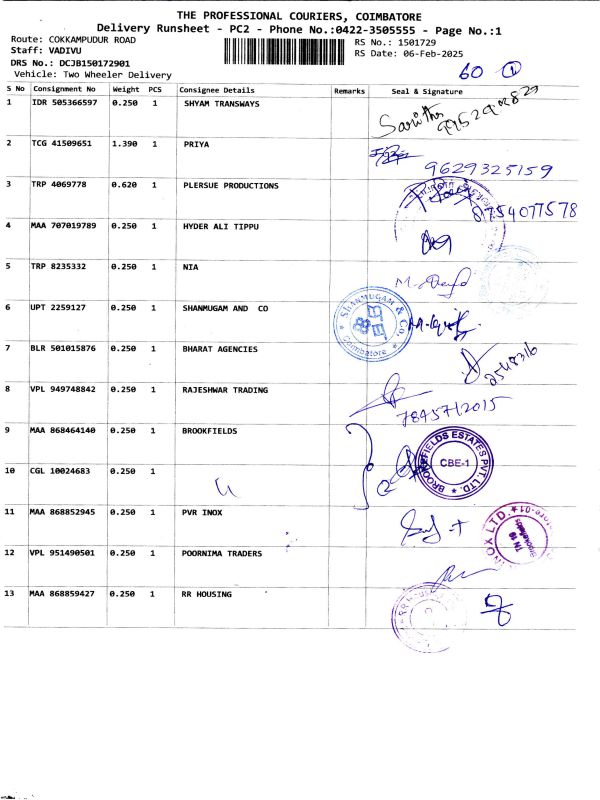 THE PROFESSIONAL COURIERS, COIMBATORE
Delivery Runsheet - PC2 - Phone No.:0422-3505555 - Page No.:1
Route: COKKAMPUDUR ROAD RS No.: 1501729
Staff: VADIVU RS Date: 06-Feb-2025
DRS No.: DCJB150172901
Vehicle: Two Wheeler Delivery 60 1
S No Consignment No Weight PCS Consignee Details Remarks Seal & Signature
1 IDR 505366597 0.250 1 SHYAM TRANSWAYS
2 TCG 41509651 1.390 1 PRIYA 9629325159
3 TRP 4069778 0.620 1 PLERSUE PRODUCTIONS 8754077578
4 MAA 707019789 0.250 1 HYDER ALI TIPPU
5 TRP 8235332 0.250 1 NIA
6 UPT 2259127 0.250 1 SHANMUGAM AND CO SHANMUGAM & Co. Coimbatore
7 BLR 501015876 0.250 1 BHARAT AGENCIES 2548316
8 VPL 949748842 0.250 1 RAJESHWAR TRADING 7845712015
9 MAA 868464140 0.250 1 BROOKFIELDS BROOKFIELDS ESTATES PVT. LTD. CBE-1
10 CGL 10024683 0.250 1
11 MAA 868852945 0.250 1 PVR INOX INOX LTD. TN 10 Brookefields
12 VPL 951490501 0.250 1 POORNIMA TRADERS
13 MAA 868859427 0.250 1 RR HOUSING